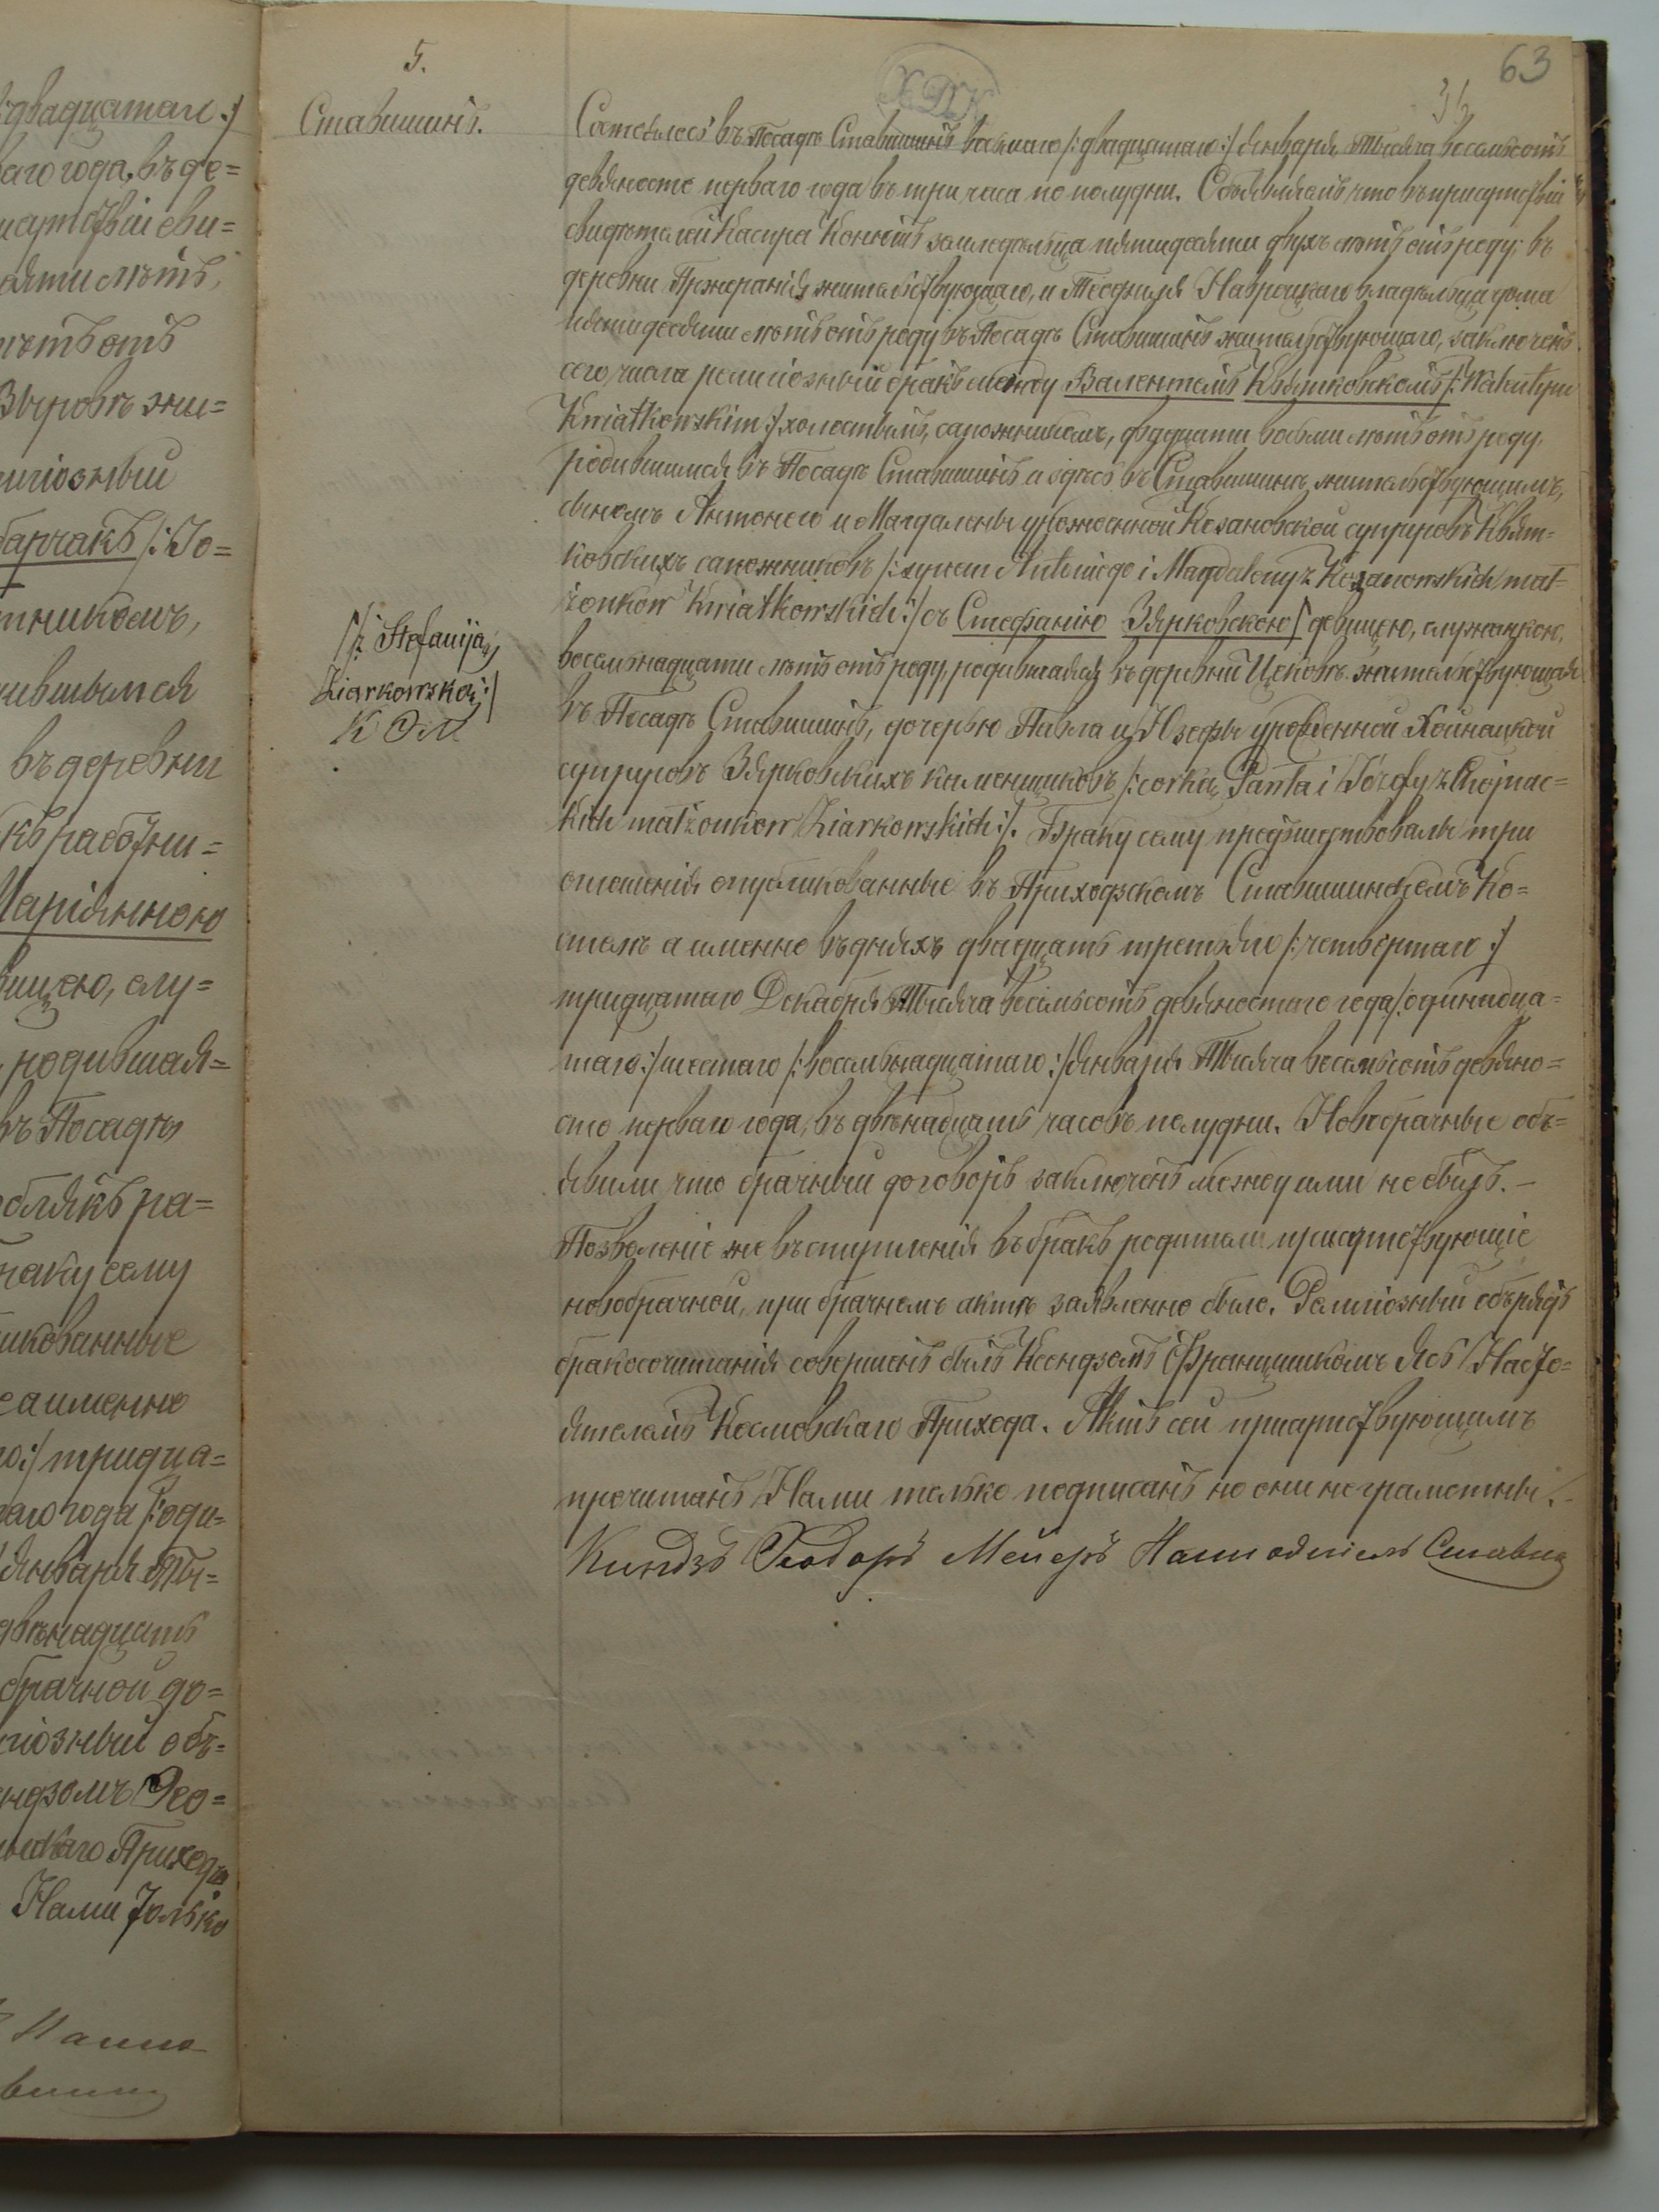 вдвадцатаго:/
ваго года, въ де=
исутствіи сви=
сяти лѣтъ,
лѣтъ отъ
игіозный
барчакъ /: Jo=
тникомъ,
ившымся
въ деревни
къ работни=
Маріянною
вицею, слу=
, родившая=
въ Посадѣ
облякъ ра=
раку сему
икованные
а именно
го:/ тридца=
таго года /: оди=
Января Ты=
двѣнадцать
брачной до=
гіозный объ=
ендзомъ Ѳео=
нскаго Прихода
Нами только
5.
Ставишинъ.
/: Stefaniją
Ziarkowską:/
К Ѳ М
ХДК
63
Состоялось въ Посадѣ Ставишинѣ восьмаго /: двадцатаго:/ Января Тысяча восемьсотъ
девяносто перваго года въ три часа по полудни. Объявляемъ что въ присутствіи
свидѣтелей Каспра земледѣльца пятидесяти двухъ лѣтъ отъ роду, въ
деревни жительствующаго, и Теофиля Навроцкаго владѣльца дома
пятидесяти лѣтъ отъ роду въ Посадѣ Ставишинѣ жительствующаго, заключенъ
сего числа религіозный бракъ между Валентемъ Квятковскимъ /: Walentym
Kwiatkowskim:/ холостымъ, сапожникомъ, двадцати восьми лѣтъ отъ роду,
родившимся въ Посадѣ Ставишинѣ и здѣсь въ Ставишинѣ жительствующимъ,
сыномъ Антонего и Магдалены урожденной Козановской супруговъ Квят=
ковскихъ сапожниковъ /: synem Antoniego i Magdaleny z Kozanowskich mał=
żonków Kwiatkowskich:/ съ Стефанію Зярковскою / девицею, служанкою,
восемьнадцати лѣтъ отъ роду, родившаяся въ деревни Цѣковѣ жительствующая
въ Посадѣ Ставишинѣ, дочерью Павла и Юзефы урожденной Хойнацкой
супруговъ Зярковскихъ каменщиковъ /: corką Pawła i Józefy z Chojnac=
kich małżonków Ziarkowskich:/. Браку сему предшествовали три
оглашенія опубликованные въ Приходскомъ Ставишинскомъ Ко=
стелѣ а именно въ дняхъ двадцать третьяго /: четвертаго:/
тридцатаго Декабря Тысяча восемьсотъ девяностаго года /: одинадца=
таго:/ шестаго /: восемьнадцатаго:/ Января Тысяча восемьсотъ девяно=
сто перваго года, въ двѣнадцать часовъ полудни. Новобрачные объ=
явили что брачный договоръ заключенъ между ими не былъ. –
Позволеніе же въступленія въ бракъ родители присутствующіе
новобрачной, при брачномъ актѣ заявленно было. Религіозный обърядъ
бракосочитанія совершенъ былъ Ксендзомъ Францишкомъ Настo=
ятелемъ Прихода. Актъ сей присутствующимъ
прочитанъ Нами только подписанъ но они неграмотны. –
Ксиндзъ Теодоръ Мейеръ Настоятель Ставиш